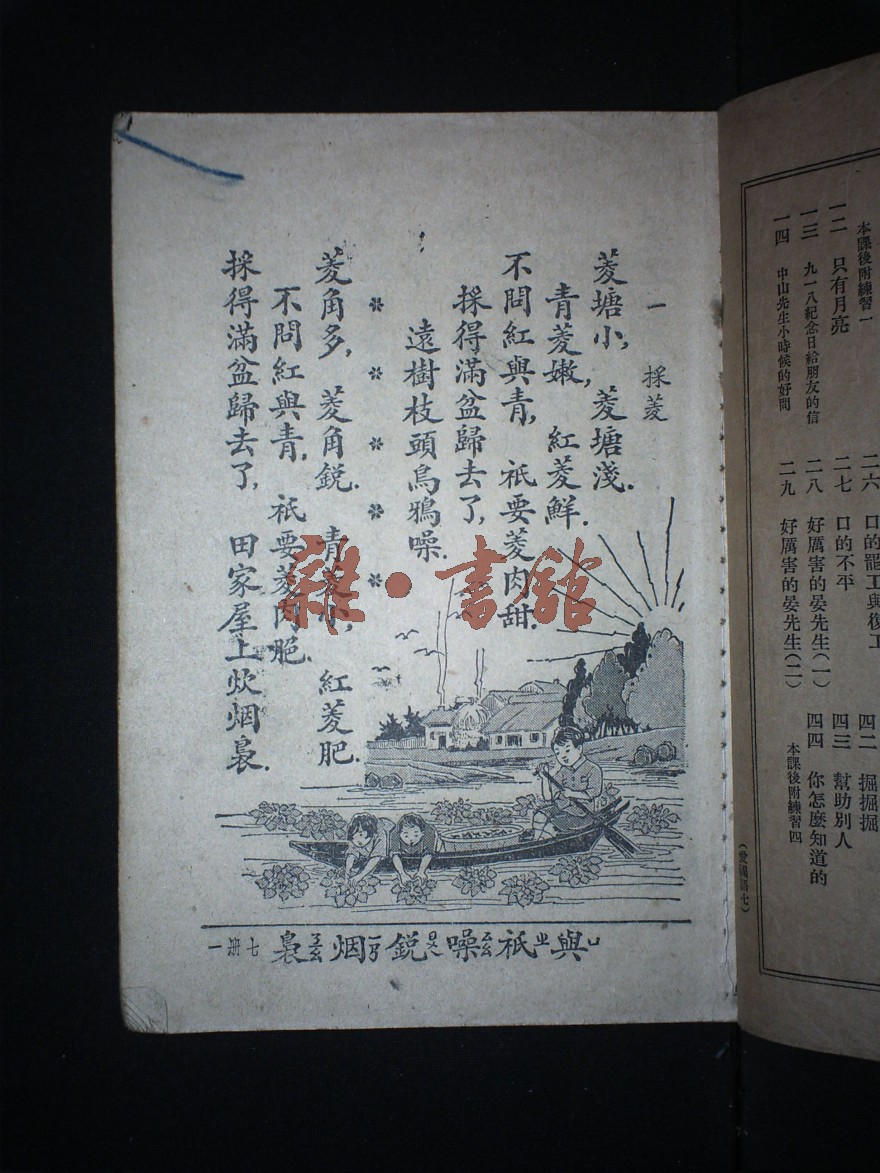 本課後附練習一
一二 只有月亮
一三 九一八紀念日給朋友的信
一四 中山先生小時候的好問
二六 口的罷工與復工
二七 口的不平
二八 好厲害的晏先生(一)
二九 好厲害的晏先生(二)
四二 掘掘掘
四三 幫助別人
四四 你怎麼知道的
本課後附練習四
一 採菱
菱塘小，菱塘淺．
青菱嫩，紅菱鮮．
不問紅與青，祇要菱肉甜．
採得滿盆歸去了，
遠樹枝頭烏鴉噪．
菱角多，菱角銳．青菱小，紅菱肥．
不問紅與青，祇要菱肉肥．
採得滿盆歸去了，田家屋上炊烟裊．
與祇噪銳烟裊
七冊 一
雜·書館